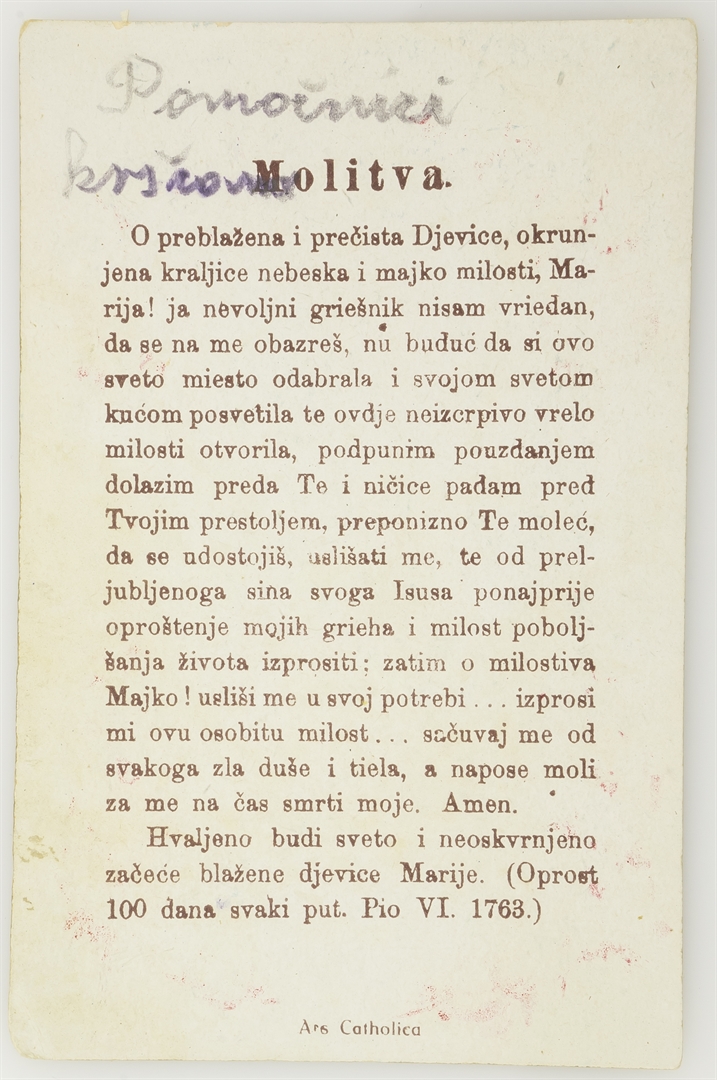 Pomoćnici
kršćana
Molitva.
O preblažena i prečista Djevice, okrun-
jena kraljice nebeska i majko milosti, Ma-
rija! ja nevoljni griešnik nisam vriedan,
da se na me obazreš, nu buduć da si ovo
sveto miesto odabrala i svojom svetom
kućom posvetila te ovdje neizcrpivo vrelo
milosti otvorila, podpunim pouzdanjem
dolazim preda Te i ničice padam pred
Tvojim prestoljem, preponizno Te moleć,
da se udostojiš, uslišati me, te od prel-
jubljenoga sina svoga Isusa ponajprije
oproštenje mojih grieha i milost pobolj-
šanja života izprositi; zatim o milostiva
Majko! usliši me u svoj potrebi... izprosi
mi ovu osobitu milost... sačuvaj me od
svakoga zla duše i tiela, a napose moli
za me na čas smrti moje. Amen.
Hvaljeno budi sveto i neoskvrnjeno
začeće blažene djevice Marije. (Oprost
100 dana svaki put. Pio VI. 1763.)
Ars Catholica